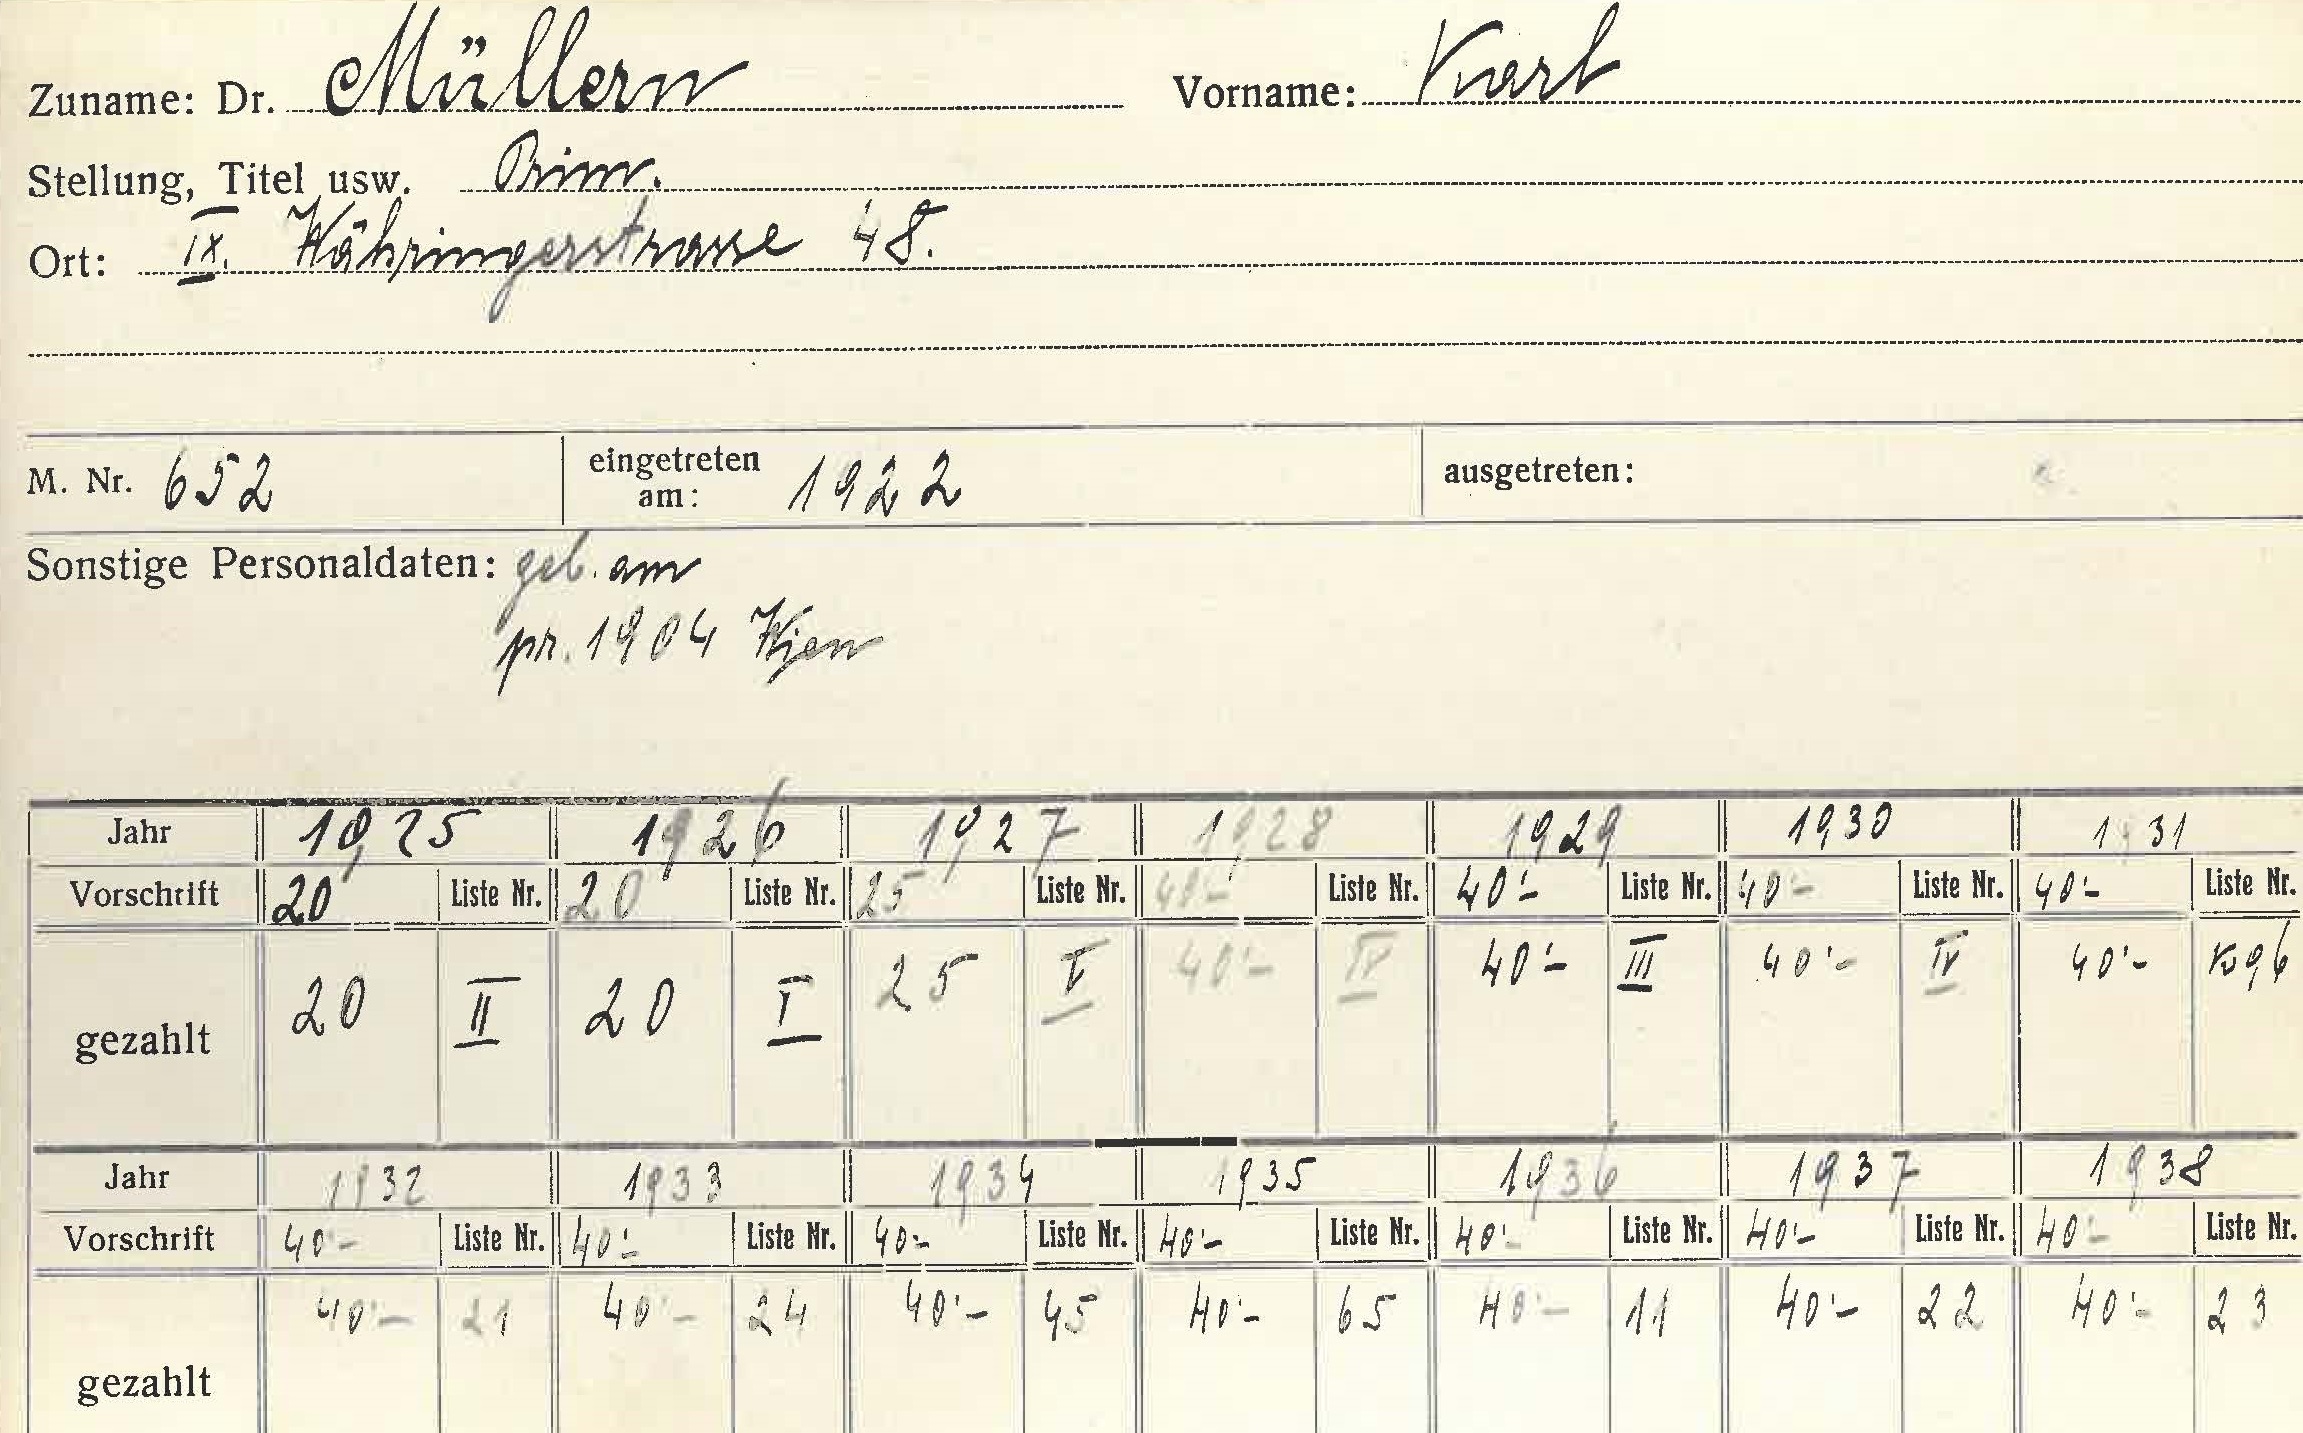 Zuname: Dr. Müllern Vorname: Karl
Stellung, Titel usw. Prim.
Ort: IX. Währingerstrasse 48.
M. Nr. 652 eingetreten am: 1922 ausgetreten:
Sonstige Personaldaten: geb. am
pr. 1904 Wien
Jahr 1925 1926 1927 1928 1929 1930 1931
Vorschrift 20 Liste Nr. 20 Liste Nr. 25 Liste Nr. 40'- Liste Nr. 40'- Liste Nr. 40'- Liste Nr. 40'- Liste Nr.
gezahlt 20 II 20 I 25 I 40'- IV 40'- III 40'- IV 40'-
Jahr 1932 1933 1934 1935 1936 1937 1938
Vorschrift 40'- Liste Nr. 40'- Liste Nr. 40'- Liste Nr. 40'- Liste Nr. 40'- Liste Nr. 40'- Liste Nr. 40'- Liste Nr.
gezahlt 40'- 21 40'- 24 40'- 45 40'- 65 40'- 11 40'- 22 40'- 23